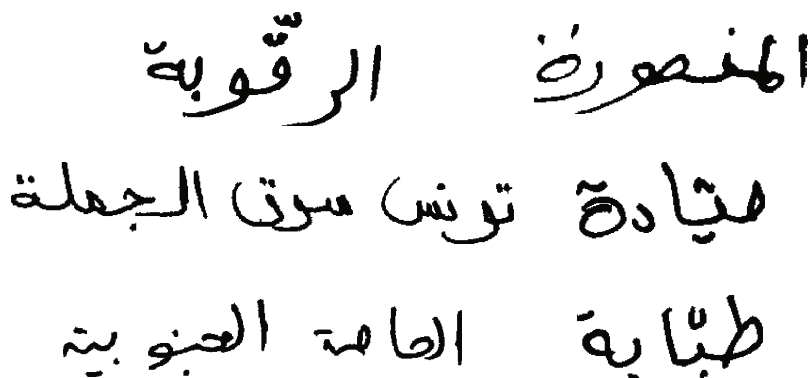 المنصورة الرقّوبة
صيّادة تونس سوق الجملة
طبّابة الجنوبية